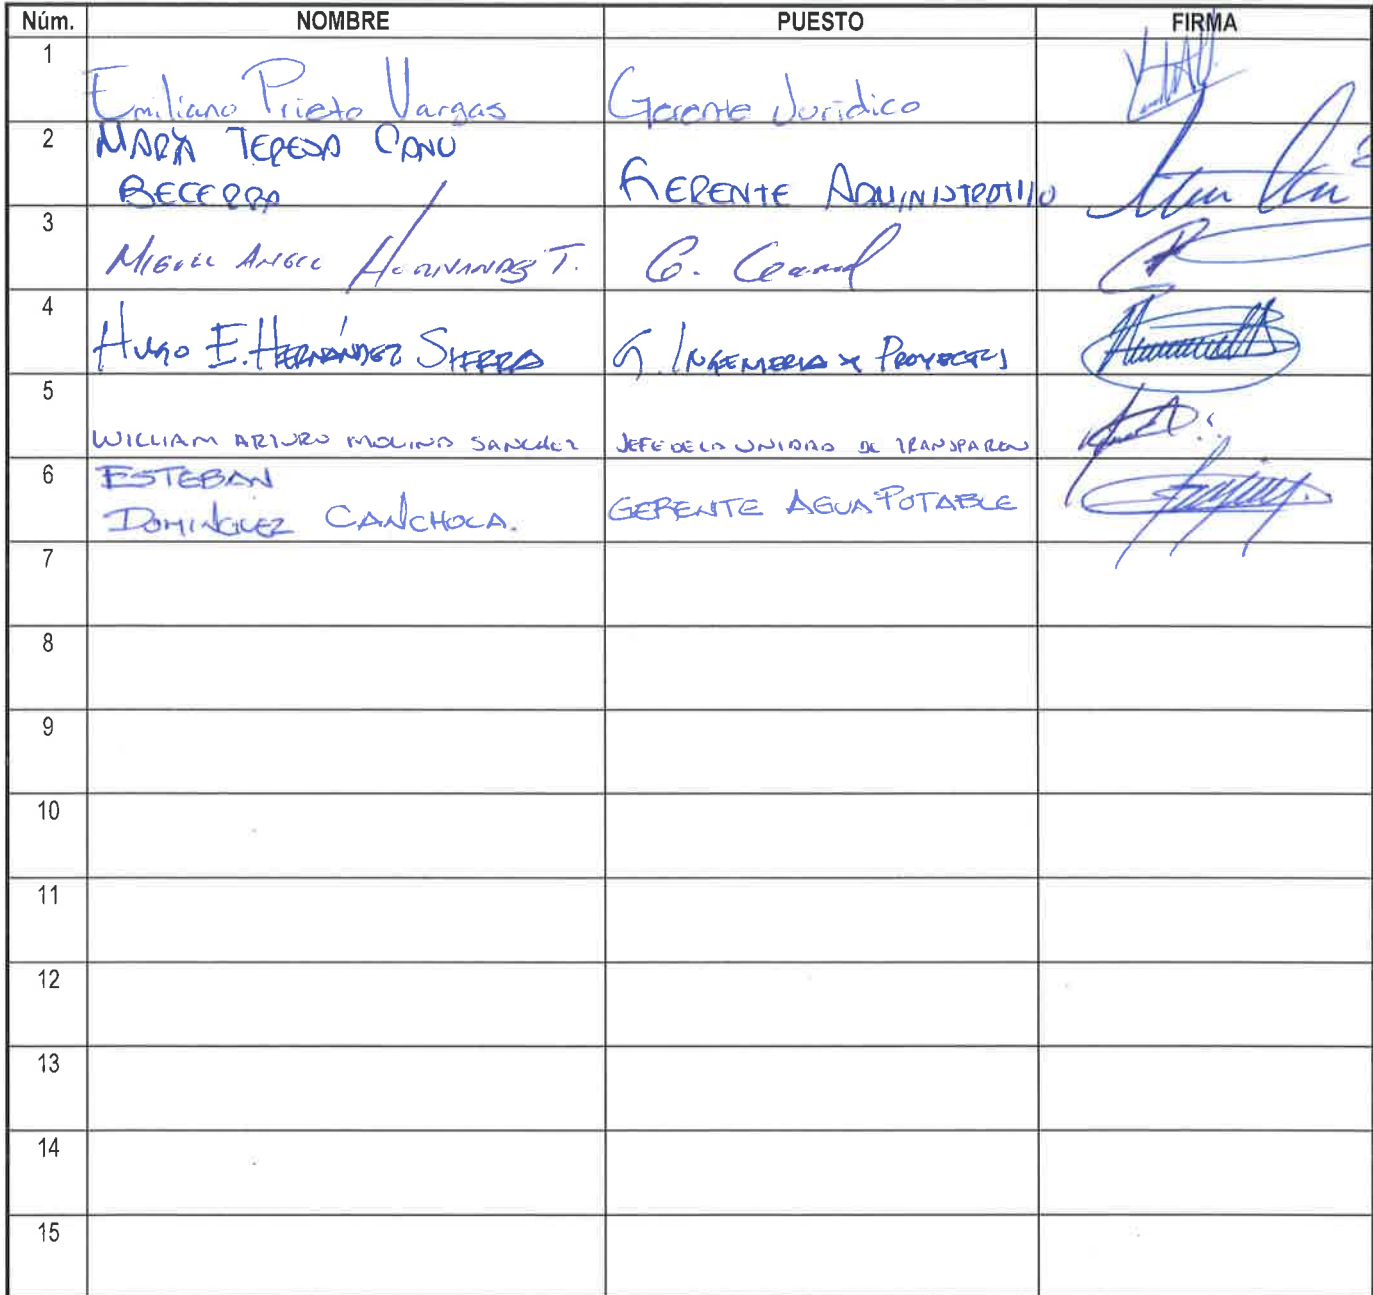 Núm. NOMBRE PUESTO FIRMA
1 Emiliano Prieto Vargas Gerente Juridico
2 MARÍA TERESA CANO
BECERRA GERENTE ADMINISTRATIVO
3 MIGUEL ANGEL HERNANDEZ T. G.
4 HUGO E. HERNÁNDEZ SIERRA G. INGENIERIA Y PROYECTOS
5 WILLIAM ARTURO MOLINA SANCHEZ JEFE DE LA UNIDAD DE TRANSPAREN
6 ESTEBAN
DOMINGUEZ CANCHOLA. GERENTE AGUA POTABLE
7
8
9
10
11
12
13
14
15